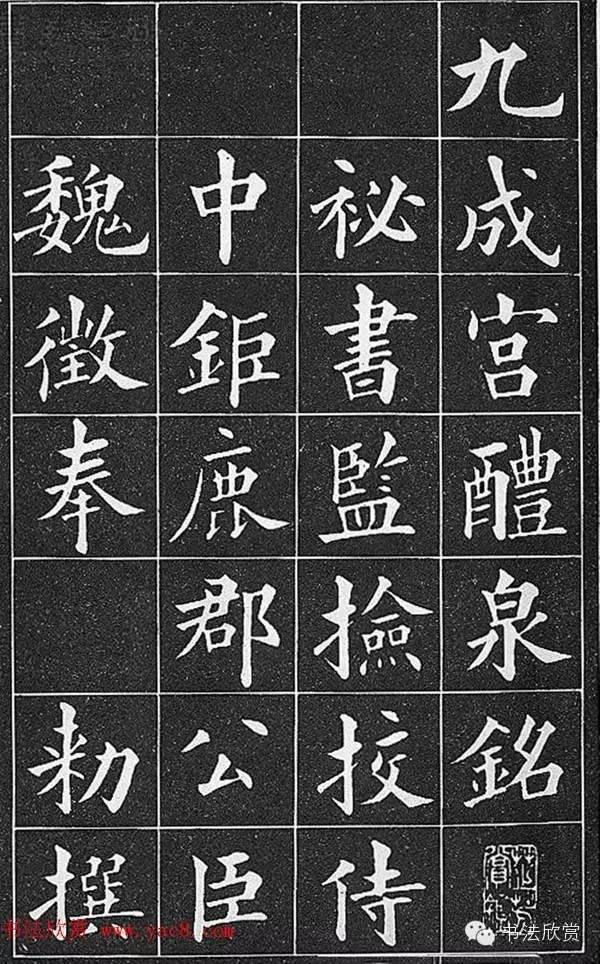 九成宮醴泉銘
祕書監撿挍侍
中鉅鹿郡公臣
魏徵奉
勑撰
书法欣赏 www.yac8.com
书法欣赏